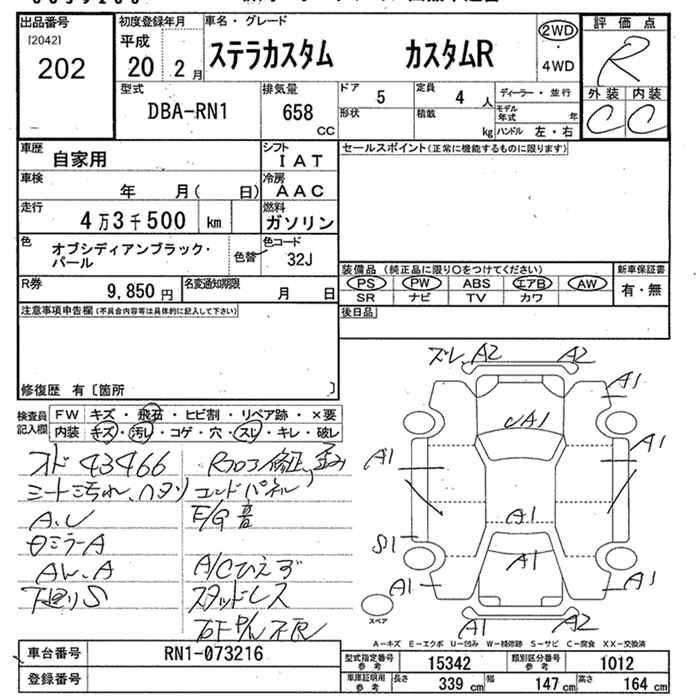 出品番号
[2042]
202
初度登録年月
平成
20 2月
車名・グレード
ステラカスタム カスタムR
2WD
・
4WD
評価点
R
外装 内装
C C
型式
DBA-RN1
排気量
658
CC
ドア 5
形状
定員 4 人
積載 kg
ディーラー・並行
モデル年式 年
ハンドル 左・右
車歴 自家用
シフト IAT
車検 年 月( 日)
冷房 AAC
走行 4万3千500 km
燃料 ガソリン
色 オブシディアンブラック・パール
色替
色コード 32J
R券 9,850円
名変通知期限 月 日
セールスポイント(正常に機能するものに限ります)
装備品(純正品に限り○をつけてください)
PS PW ABS エアB AW
SR ナビ TV カワ
新車保証書
有・無
後日品
注意事項申告欄(不具合内容等は具体的に記入して下さい)
修復歴 有〔箇所 〕
検査員記入欄
FW キズ・飛石・ヒビ割・リペア跡・×要
内装 キズ・汚レ・コゲ・穴・スレ・キレ・破レ
オド 43466
シート汚れ、ハタリ
A.U
日ミラーA
AW.A
下廻りS
Rフロア修正、歪み
エンドパネル
E/G音
A/Cひえず
スタッドレス
ズレ A2 A2
A1
UA1
A1
A1
A1
A1
S1
A1
A1
A1
A2
スペア
A－キズ E－エクボ U－凹み W－補修跡 S－サビ C－腐食 XX－交換済
車台番号 RN1-073216
登録番号
型式指定番号参考 15342
類別区分番号参考 1012
車庫証明用参考 長さ 339 cm 幅 147 cm 高さ 164 cm